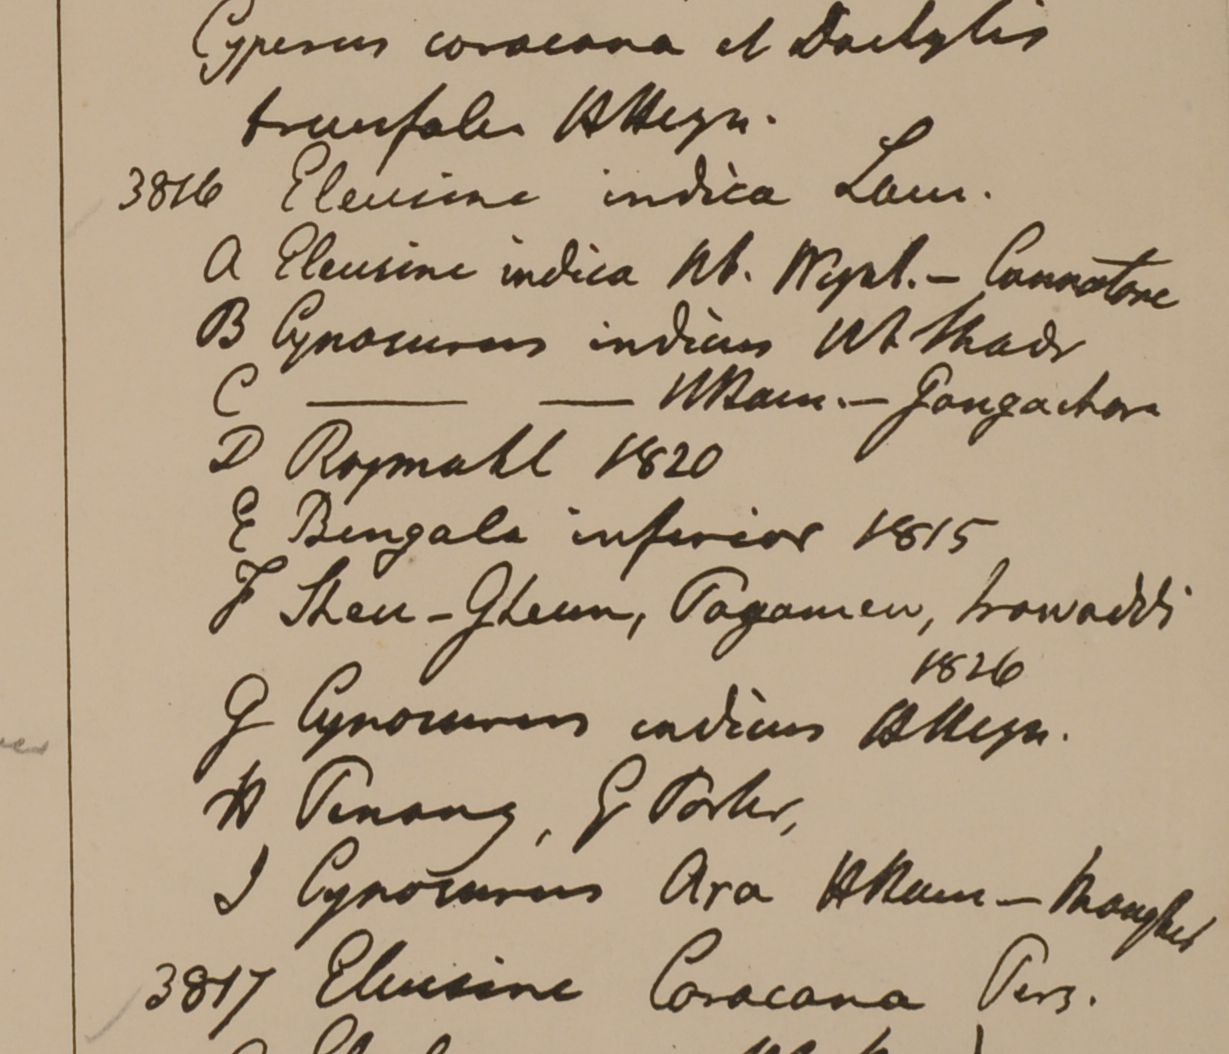 Cyperus coracana et Dactylis
HHeyn.
3816 Eleusine indica Lam.
A Eleusine indica Hb. Wight. – Cannatore
B Cynosurus indicus Hb Madr
C ——— —— HHam. – Gongachora
D Rajmahl 1820
E Bengala inferior 1815
F Sheu-Gheun, Pagamew, Irowaddi
1826
G Cynosurus indicus HHeyn.
H Penang, G Porter,
I Cynosurus Ara HHam – Mongher
3817 Eleusine Coracana Pers.